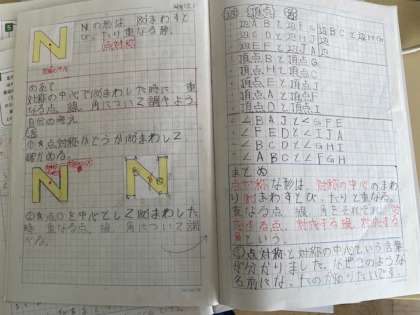 Nの形は、回まわすと
ぴったり重なる形。
点対称
N
のあて
対称の中心で回まわした時に、重
なる点、線、角について調べよう。
自分の考え
①点対称かどうか回まわして
確かめる。
N
N
②点Oを中心として回まわした
時、重なる点、線、角について調
べる。
辺 頂点 角
・辺ABと辺FG
・辺BCと辺GH
・辺CDと辺HI
・辺EFと辺JA
・頂点Bと頂点G
・頂点Hと頂点C
・頂点Jと頂点E
・頂点Aと頂点F
・頂点Dと頂点I
・∠BAJと∠GFE
・∠FEDと∠IJA
・∠BCDと∠GHI
・∠ABCと∠FGH
まとめ
点対称な形は、対称の中心のまわ
り回まわすとぴったりと重なる。
重なる点、線、角をそれぞれ
対応する点、対応する線、対応する
角という。
点対称と対称の中心という言葉
が分かりました。なぜこのような
名前になったのか知りたいです。